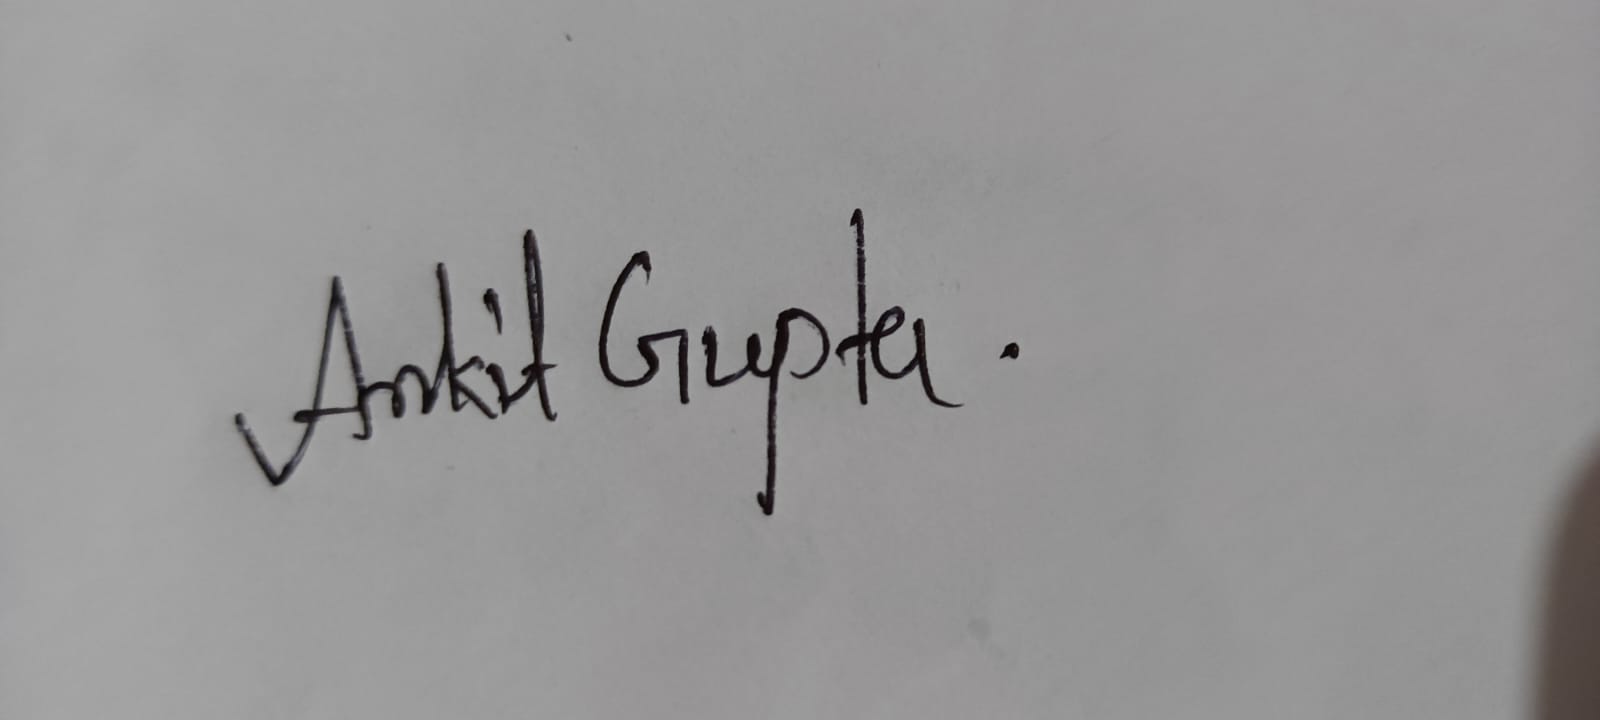 Ankit Gupta.